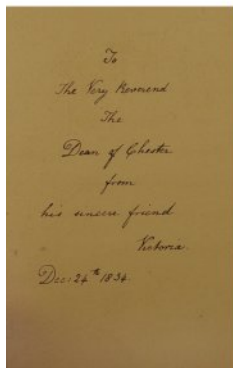 To
The Very Reverend
The
Dean of Chester
from
his sincere friend
Victoria.
Dec: 24th 1834.